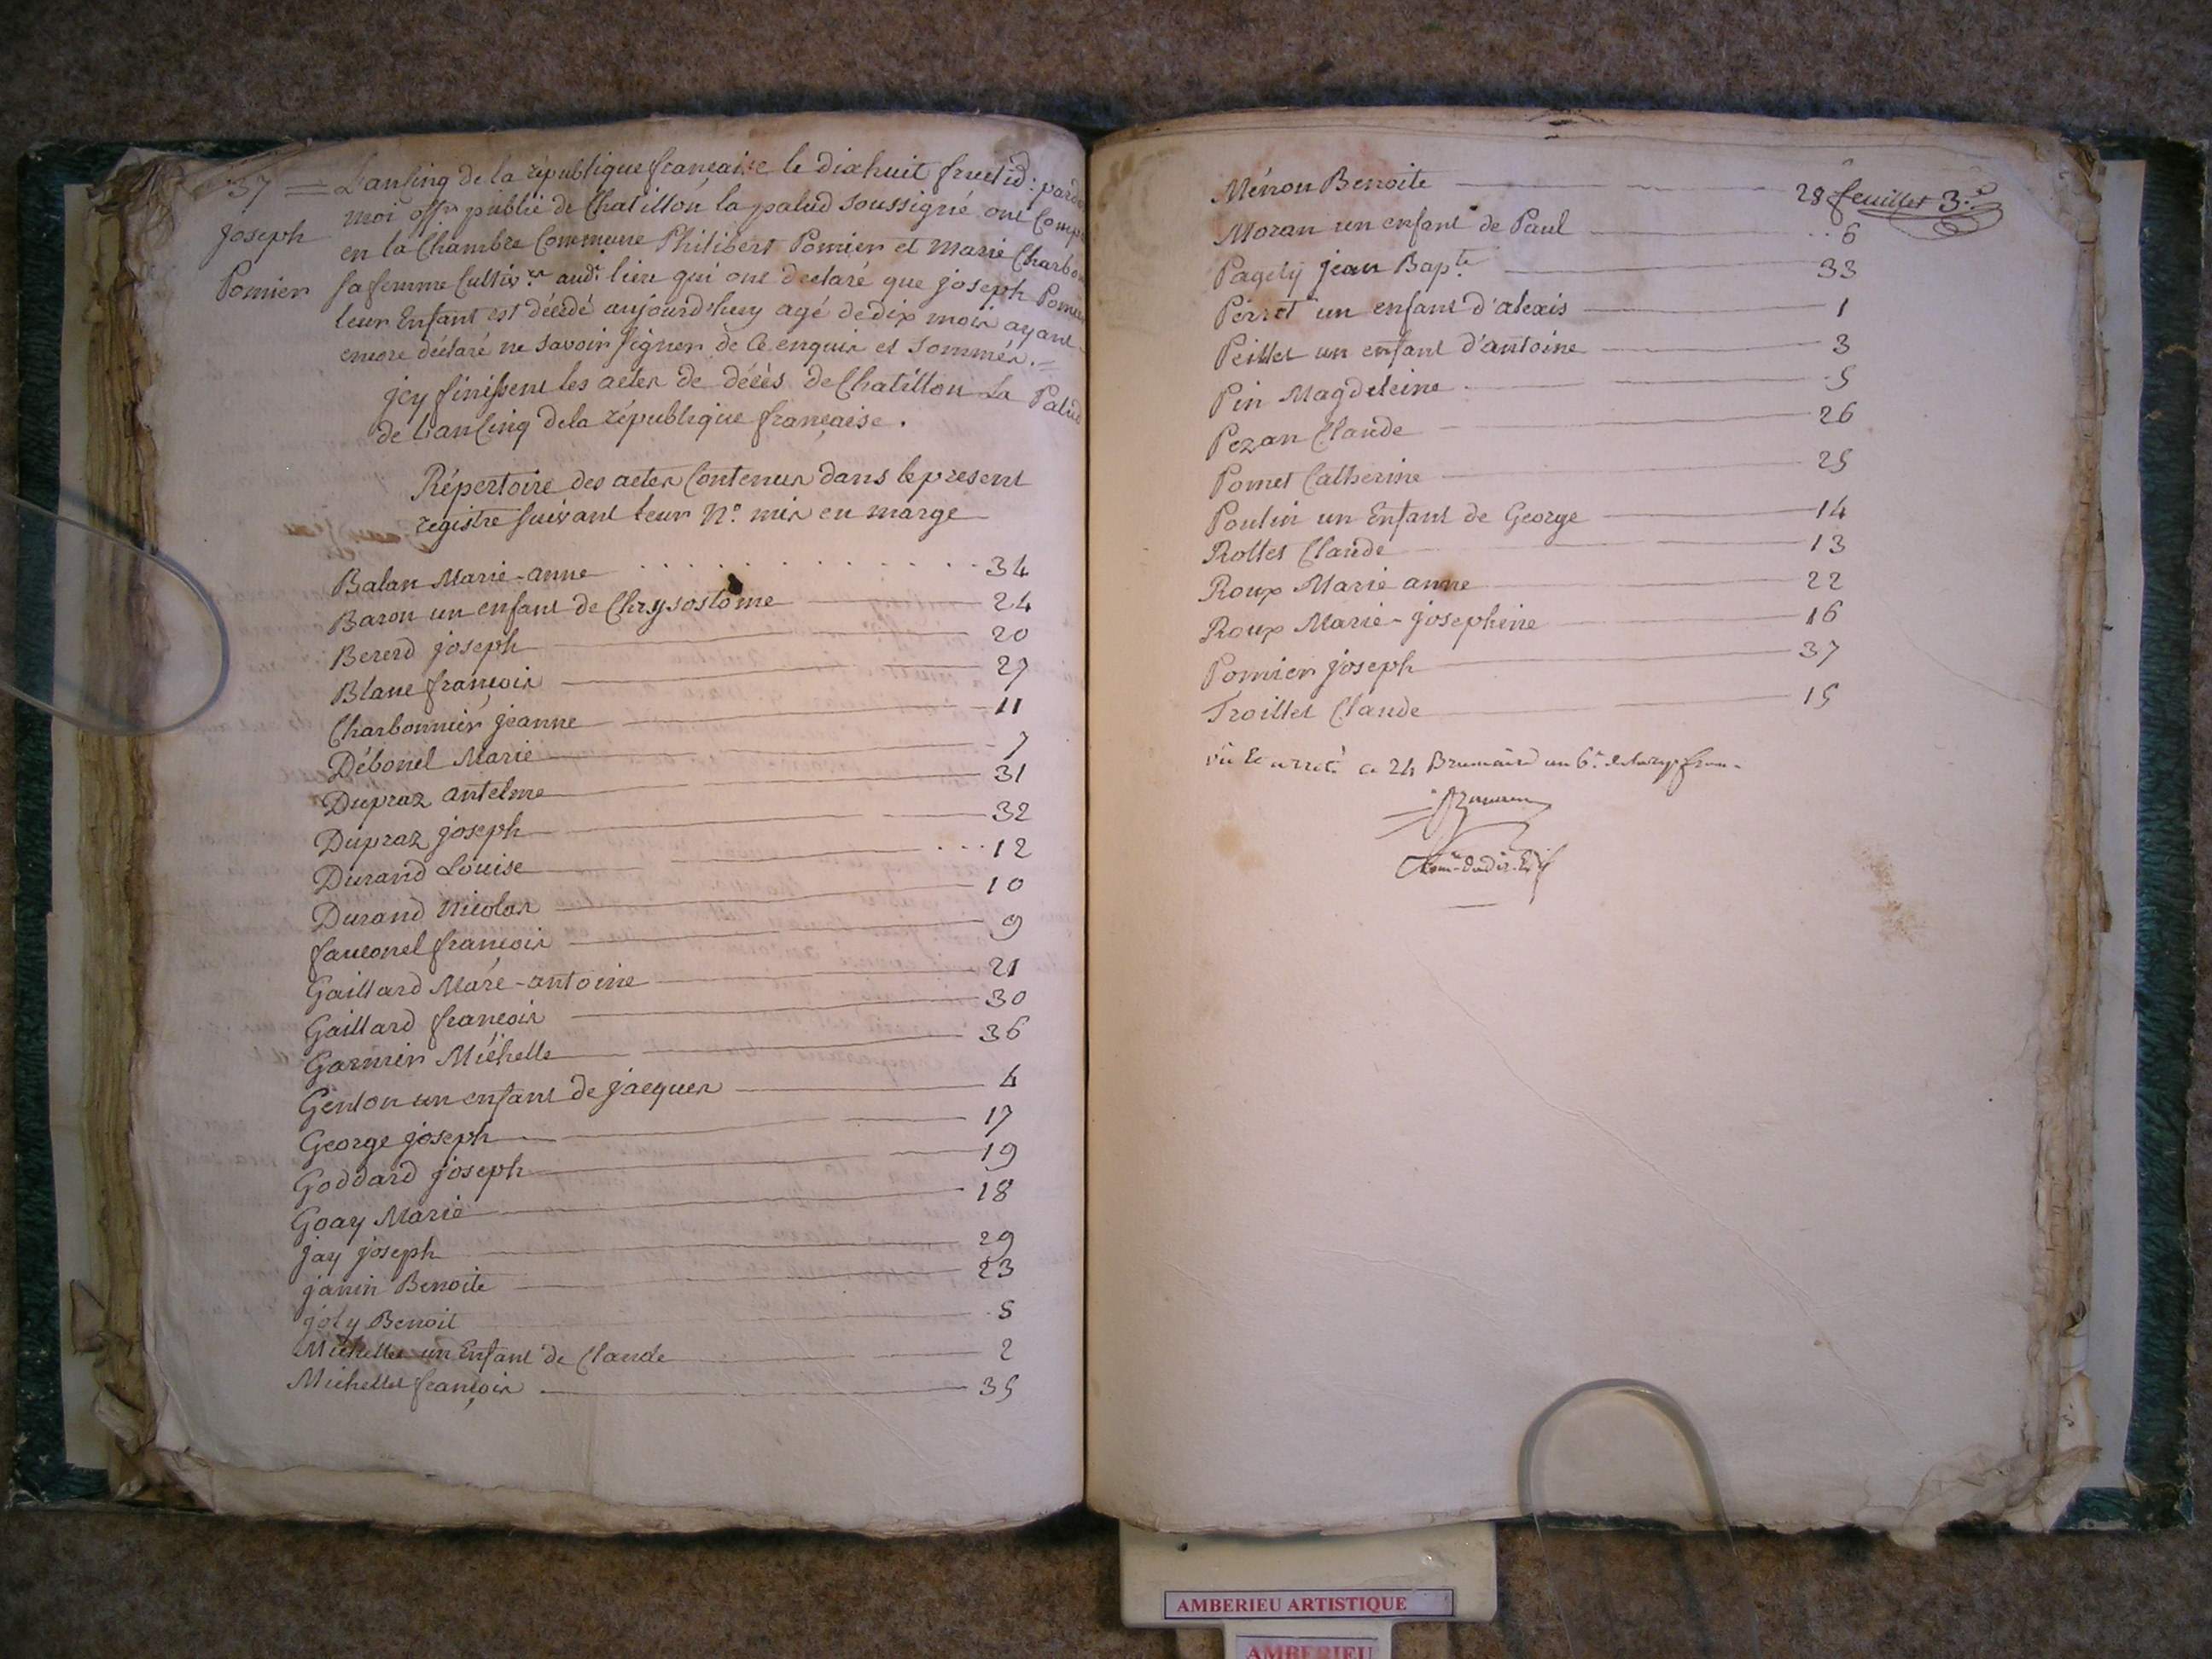 37 = L'an cinq de la république française le dixhuit fructid: pard
Joseph
Pomier
moi offr public de Chatillon la palud soussigné ont Comp
en la Chambre Commune Philibert Pomier et Marie Charbo
sa femme Cultivrs audt lieu qui ont declaré que joseph Pomier
leur Enfant est décédé aujourd'huy agé de dix mois ayant
encore déclaré ne savoir signer de ce enquis et sommés. =
jcy finissent les actes de décès de Chatillon La Palud
de L'an Cinq de la république française.
Répertoire des actes Contenus dans le present
registre suivant leur No. mis en marge
Balan Marie-anne 34
Baron un enfant de Chrysostome 24
Bererd joseph 20
Blanc françois 27
Charbonnier jeanne 11
Débonel Marie 7
Dupraz antelme 31
Dupraz joseph 32
Durand Louise 12
Durand Nicolas 10
fauconel françois 9
Gaillard Marc-antoine 21
Gaillard françois 30
Garnier Michelle 36
Genton un enfant de jacques 4
George joseph 17
Goddard joseph 19
Goay Marie 18
jay joseph 29
janin Benoite 23
joly Benoit 5
Michellet un Enfant de Claude 2
Michellet françois 35
Ménon Benoite 28
feuillet 3.e
Moran un enfant de Paul 6
Pagely jean Bapte 33
Perret un enfant d'alexis 1
Peillet un enfant d'antoine 3
Pin Magdeleine 5
Pezan Claude 26
Pomet Catherine 25
Poulin un Enfant de George 14
Rollet Claude 13
Roux Marie anne 22
Roux Marie-josephine 16
Pomier joseph 37
Troillet Claude 15
vu et arreté ce 24 Brumaire an 6.e
AMBERIEU ARTISTIQUE
AMBERIEU